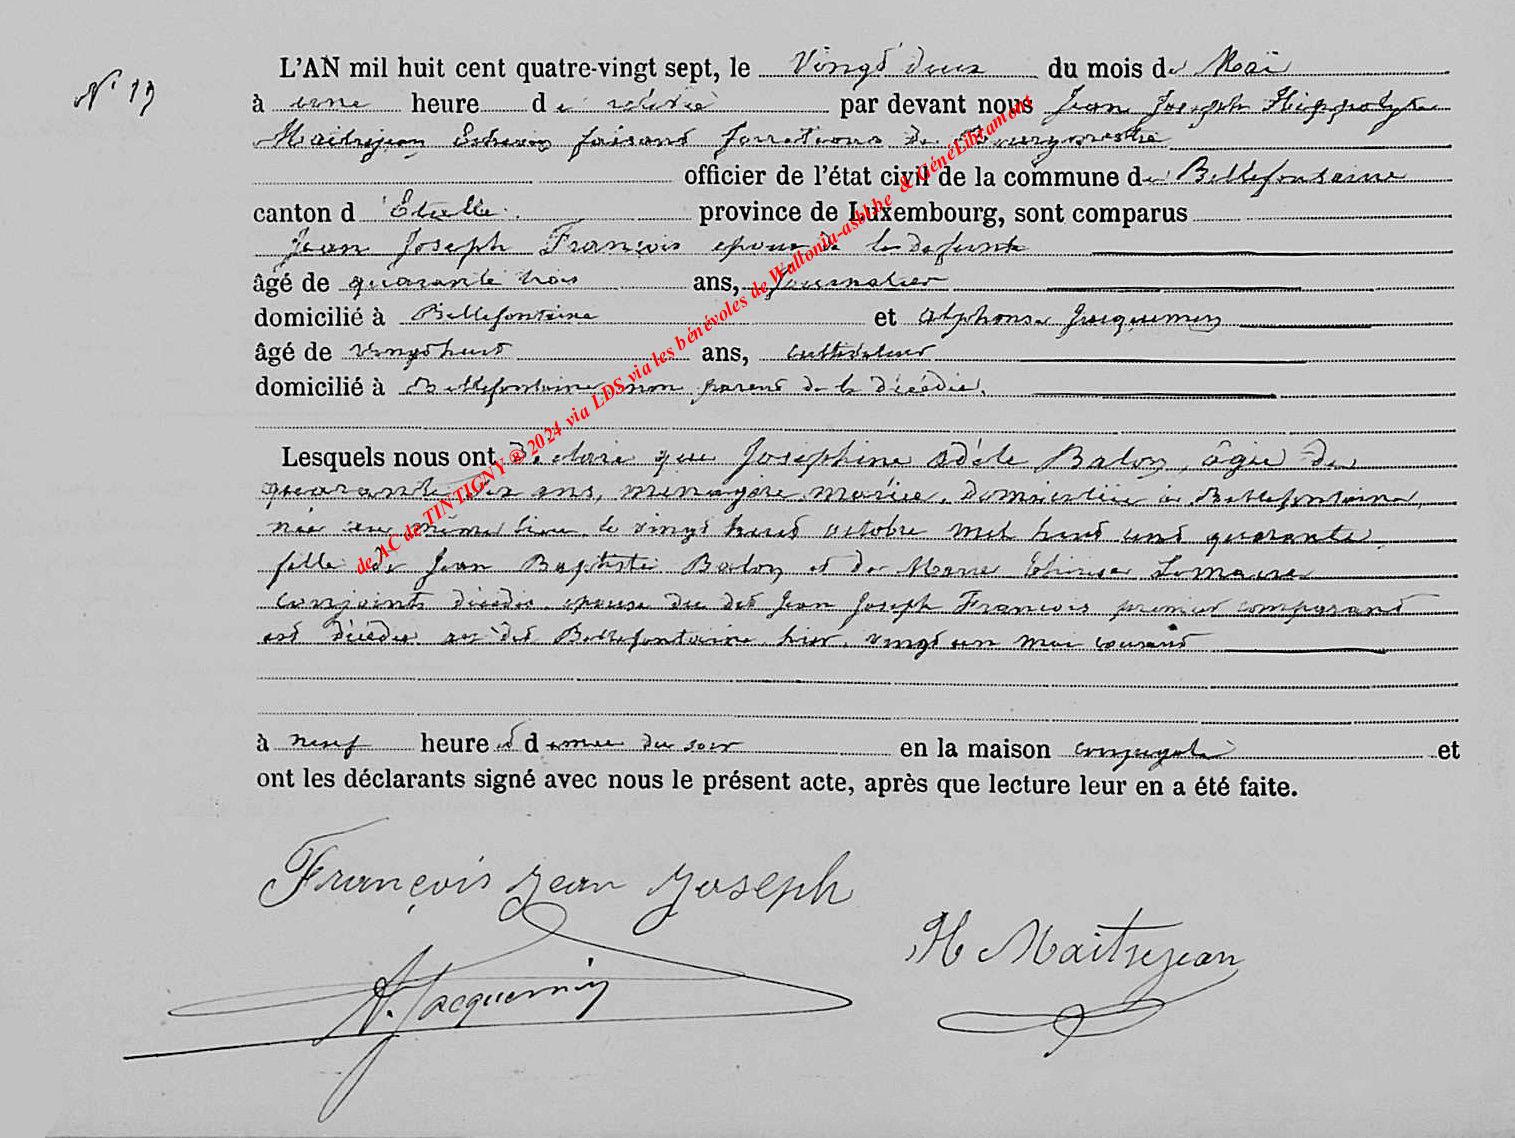 N° 19
L'AN mil huit cent quatre-vingt sept, le Vingt deux du mois de Mai
à une heure de relevée par devant nous Jean Joseph Hippolyte
Maitrejean Echevin faisant fonctions de Bourgmestre
officier de l'état civil de la commune de Bellefontaine
canton d'Etalle province de Luxembourg, sont comparus
Jean Joseph François epoux de la defunte
âgé de quarante trois ans, journalier
domicilié à Bellefontaine et Alphonse Jacquemin
âgé de vingt huit ans, cultivateur
domicilié à Bellefontaine non parent de la décédée.
Lesquels nous ont déclaré que Joséphine Adèle Balon, âgée de
quarante six ans, ménagère mariée, domiciliée à Bellefontaine,
née au même lieu le vingt huit octobre mil huit cent quarante
fille de Jean Baptiste Balon et de Marie Thérèse Lemaire
conjoints décédés. epouse du dit Jean Joseph François premier comparant
est décédée au dit Bellefontaine, hier, vingt un mai courant
à neuf heure et demie du soir en la maison conjugale et
ont les déclarants signé avec nous le présent acte, après que lecture leur en a été faite.
François Jean Joseph
H Maitrejean
A. Jacquemin
de AC de TINTIGNY @ 2024 via LDS via les bénévoles de Wallonia-asbl.be & GénéLibramont